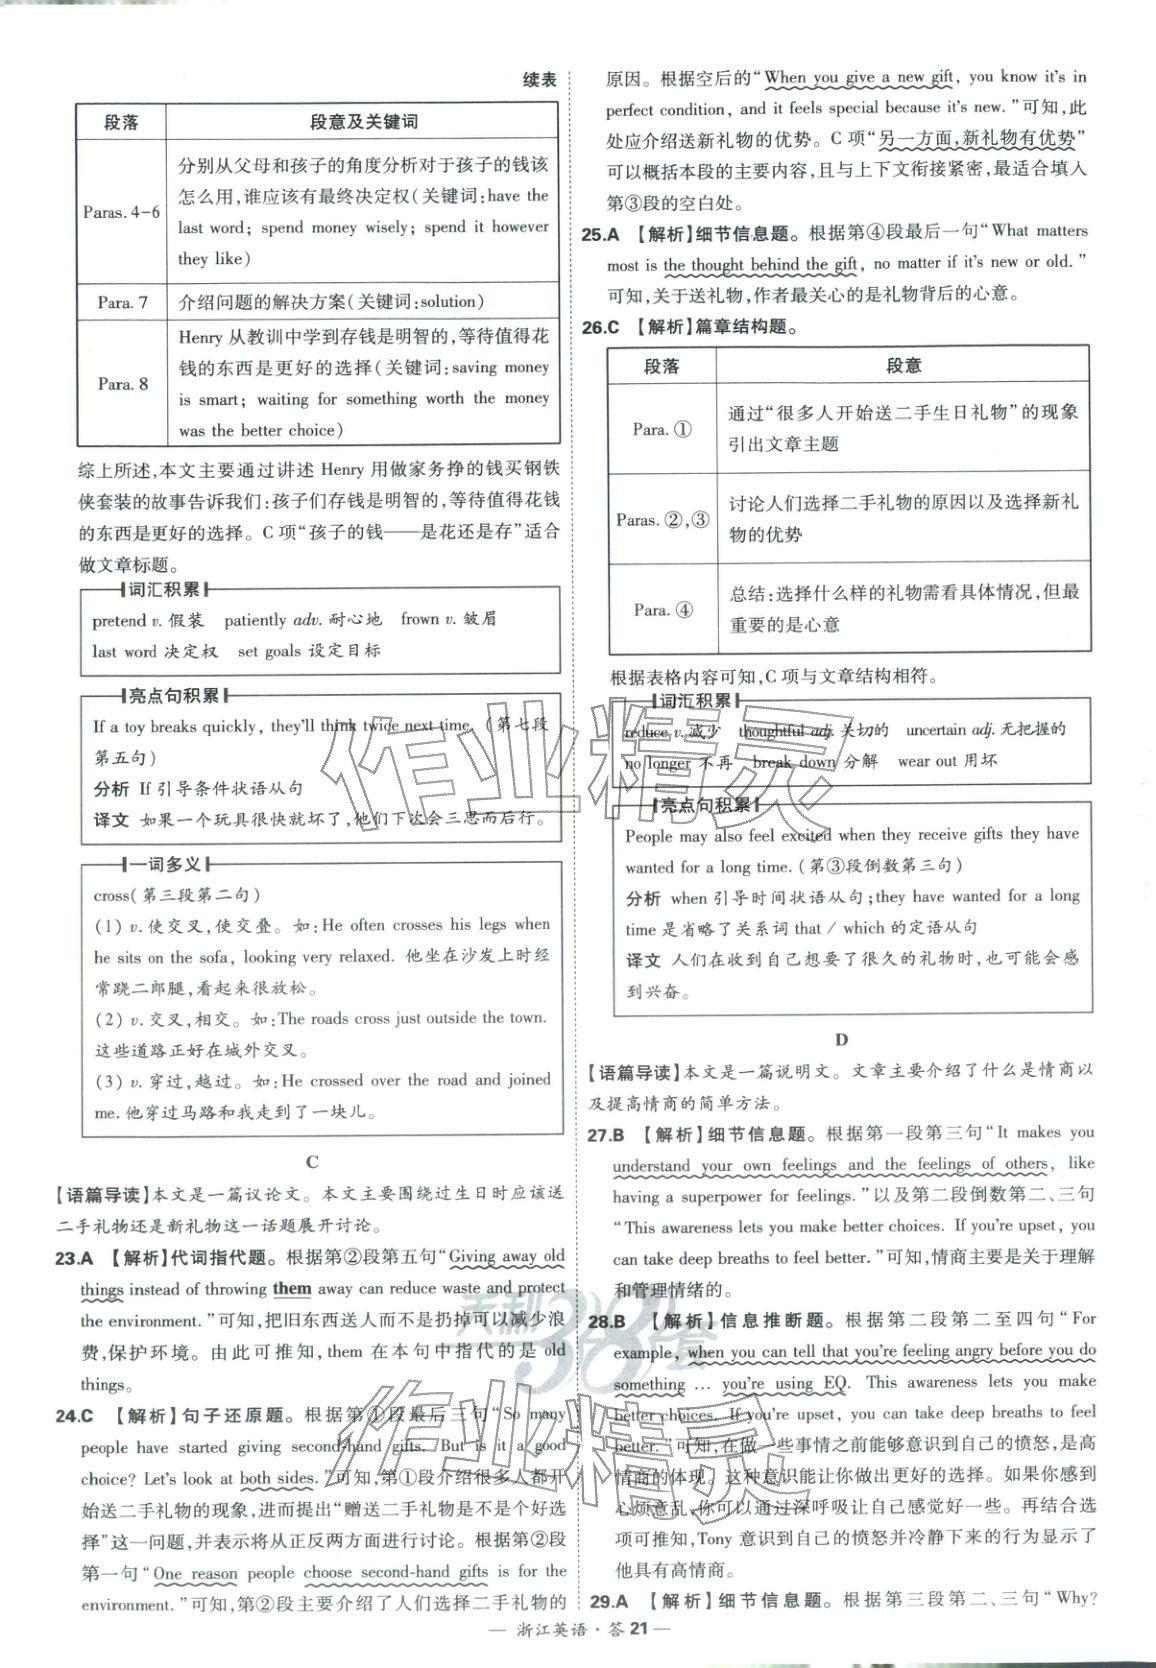 续表
段落 段意及关键词
Paras. 4-6
分别从父母和孩子的角度分析对于孩子的钱该
怎么用,谁应该有最终决定权(关键词:have the
last word; spend money wisely; spend it however
they like)
Para. 7 介绍问题的解决方案(关键词:solution)
Para. 8
Henry 从教训中学到存钱是明智的,等待值得花
钱的东西是更好的选择(关键词:saving money
is smart; waiting for something worth the money
was the better choice)
综上所述,本文主要通过讲述 Henry 用做家务挣的钱买钢铁
侠套装的故事告诉我们:孩子们存钱是明智的,等待值得花钱
的东西是更好的选择。C 项“孩子的钱——是花还是存”适合
做文章标题。
词汇积累
pretend v. 假装 patiently adv. 耐心地 frown v. 皱眉
last word 决定权 set goals 设定目标
亮点句积累
If a toy breaks quickly, they'll think twice next time. (第七段
第五句)
分析 If 引导条件状语从句
译文 如果一个玩具很快就坏了,他们下次会三思而后行。
一词多义
cross(第三段第二句)
(1) v. 使交叉,使交叠。如:He often crosses his legs when
he sits on the sofa, looking very relaxed. 他坐在沙发上时经
常跷二郎腿,看起来很放松。
(2) v. 交叉,相交。如:The roads cross just outside the town.
这些道路正好在城外交叉。
(3) v. 穿过,越过。如:He crossed over the road and joined
me. 他穿过马路和我走到了一块儿。
C
【语篇导读】本文是一篇议论文。本文主要围绕过生日时应该送
二手礼物还是新礼物这一话题展开讨论。
23.A 【解析】代词指代题。根据第②段第五句“Giving away old
things instead of throwing them away can reduce waste and protect
the environment.”可知,把旧东西送人而不是扔掉可以减少浪
费,保护环境。由此可推知, them 在本句中指代的是 old
things。
24.C 【解析】句子还原题。根据第①段最后三句“So many
people have started giving second-hand gifts. But is it a good
choice? Let's look at both sides.”可知,第①段介绍很多人都开
始送二手礼物的现象,进而提出“赠送二手礼物是不是个好选
择”这一问题,并表示将从正反两方面进行讨论。根据第②段
第一句“One reason people choose second-hand gifts is for the
environment.”可知,第②段主要介绍了人们选择二手礼物的
原因。根据空后的“When you give a new gift, you know it's in
perfect condition, and it feels special because it's new.”可知,此
处应介绍送新礼物的优势。C 项“另一方面,新礼物有优势”
可以概括本段的主要内容,且与上下文衔接紧密,最适合填入
第③段的空白处。
25.A 【解析】细节信息题。根据第④段最后一句“What matters
most is the thought behind the gift, no matter if it's new or old.”
可知,关于送礼物,作者最关心的是礼物背后的心意。
26.C 【解析】篇章结构题。
段落 段意
Para. ①
通过“很多人开始送二手生日礼物”的现象
引出文章主题
Paras. ②,③
讨论人们选择二手礼物的原因以及选择新礼
物的优势
Para. ④
总结:选择什么样的礼物需看具体情况,但最
重要的是心意
根据表格内容可知,C 项与文章结构相符。
词汇积累
reduce v. 减少 thoughtful adj. 关切的 uncertain adj. 无把握的
no longer 不再 break down 分解 wear out 用坏
亮点句积累
People may also feel excited when they receive gifts they have
wanted for a long time. (第③段倒数第三句)
分析 when 引导时间状语从句;they have wanted for a long
time 是省略了关系词 that / which 的定语从句
译文 人们在收到自己想要了很久的礼物时,也可能会感
到兴奋。
D
【语篇导读】本文是一篇说明文。文章主要介绍了什么是情商以
及提高情商的简单方法。
27.B 【解析】细节信息题。根据第一段第三句“It makes you
understand your own feelings and the feelings of others, like
having a superpower for feelings.”以及第二段倒数第二、三句
“This awareness lets you make better choices. If you're upset, you
can take deep breaths to feel better.”可知,情商主要是关于理解
和管理情绪的。
28.B 【解析】信息推断题。根据第二段第二至四句“For
example, when you can tell that you're feeling angry before you do
something ... you're using EQ. This awareness lets you make
better choices. If you're upset, you can take deep breaths to feel
better.”可知,在做一些事情之前能够意识到自己的愤怒,是高
情商的体现。这种意识能让你做出更好的选择。如果你感到
心烦意乱,你可以通过深呼吸让自己感觉好一些。再结合选
项可推知,Tony 意识到自己的愤怒并冷静下来的行为显示了
他具有高情商。
29.A 【解析】细节信息题。根据第三段第二、三句“Why?
— 浙江英语 · 答 21 —
作业精灵
天利38套
作业精灵